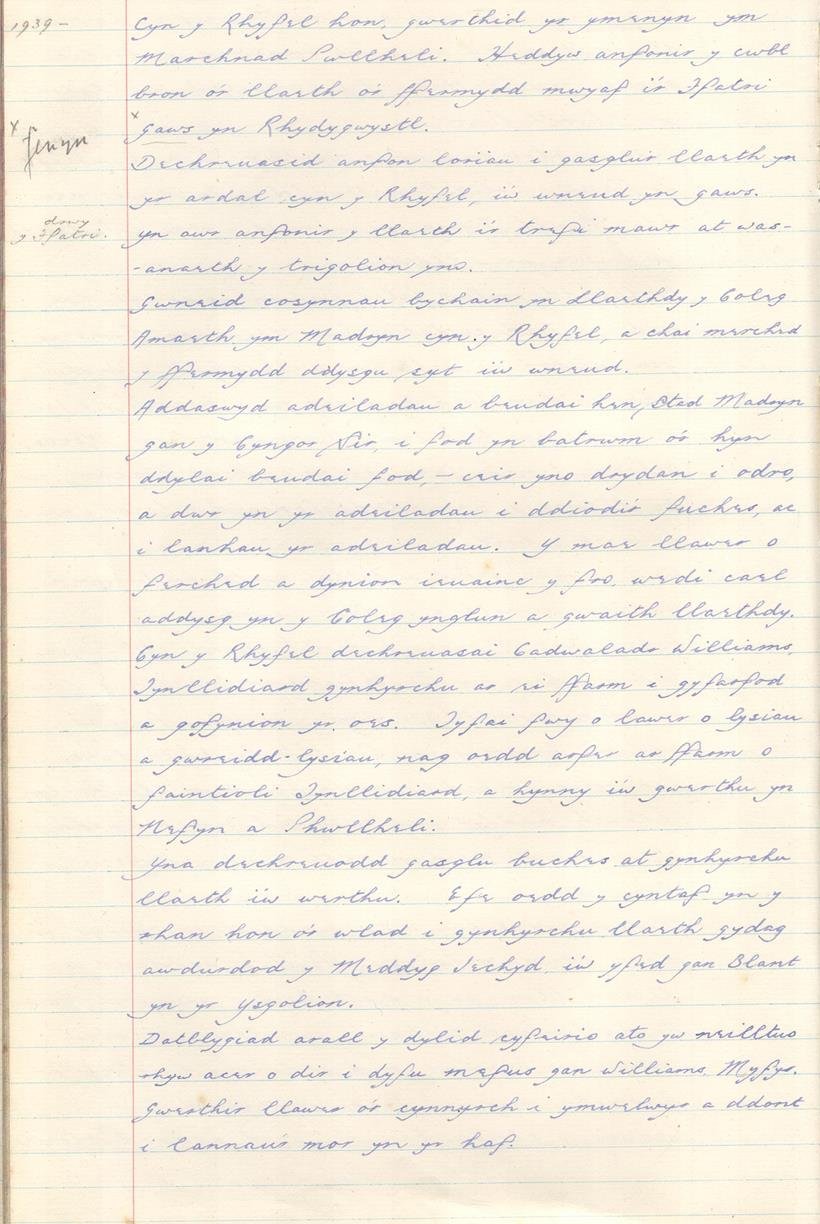 1939-
Cyn y Rhyfel hon, gwerthid yr ymenyn ym
Marchnad Pwllheli. Heddyw anfonir y cwbl
bron o'r llaeth o'r ffermydd mwyaf i'r Ffatri
x
x gaws yn Rhydygwystl.
Dechreuasid anfon loriau i gasglu'r llaeth yn
yr ardal cyn y Rhyfel, i'w wneud yn gaws.
drwy
y Ffatri.
yn awr anfonir y llaeth i'r trefi mawr at was-
-anaeth y trigolion yno.
Gwneid cosynnau bychain yn Llaethdy y Coleg
Amaeth ym Madryn cyn y Rhyfel, a chai merched
y ffermydd ddysgu syt i'w wneud.
Addaswyd adeiladau a beudai hen Sted Madryn
gan y Cyngor Sir, i fod yn batrwm o'r hyn
ddylai beudai fod, - ceir yno drydan i odro,
a dwr yn yr adeiladau i ddiodi'r fuches, ac
i lanhau yr adeiladau. Y mae llawer o
ferched a dynion ieuainc y fro, wedi cael
addysg yn y Coleg ynglun a gwaith llaethdy.
Cyn y Rhyfel dechreuasai Cadwaladr Williams,
Tynllidiard gynhyrchu ar ei ffarm i gyfarfod
a gofynion yr oes. Tyfai fwy o lawer o lysiau
a gwreidd-lysiau, nag oedd arfer ar ffarm o
faintioli Tynllidiard, a hynny i'w gwerthu yn
Nefyn a Phwllheli.
Yna dechreuodd gasglu buches at gynhyrchu
llaeth i'w werthu. Efe oedd y cyntaf yn y
rhan hon o'r wlad i gynhyrchu llaeth gydag
awdurdod y Meddyg Iechyd, i'w yfed gan Blant
yn yr Ysgolion.
Datblygiad arall y dylid cyfeirio ato yw neilltuo
rhyw acer o dir i dyfu mefus gan Williams, Myfyr.
Gwerthir llawer o'r cynnyrch i ymwelwyr a ddont
i lannau'r mor yn yr haf.